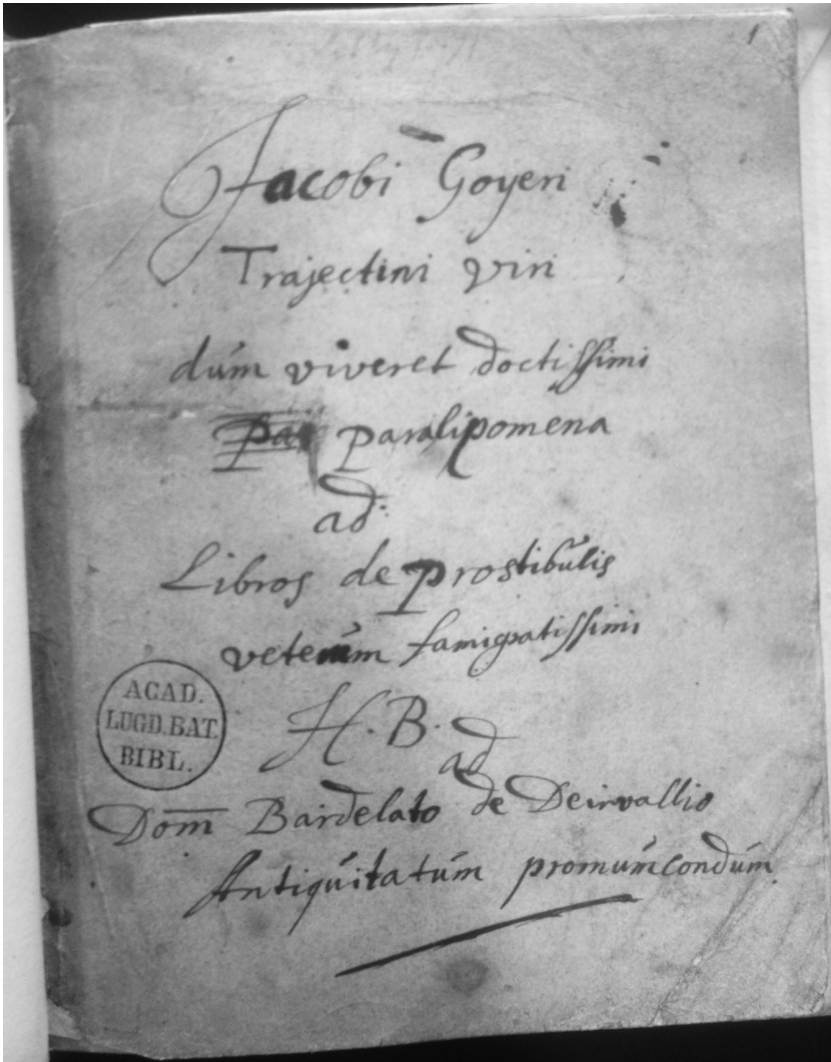 1
Jacobi Goyeri
Trajectini viri
dum viveret doctissimi
Pa paralipomena
ad
Libros de prostibulis
veterum famigratissimi
H. B.
ad
Dom̅ Bardelato de Deirvallio
Antiquitatum promumcondum
ACAD.
LUGD.BAT.
BIBL.